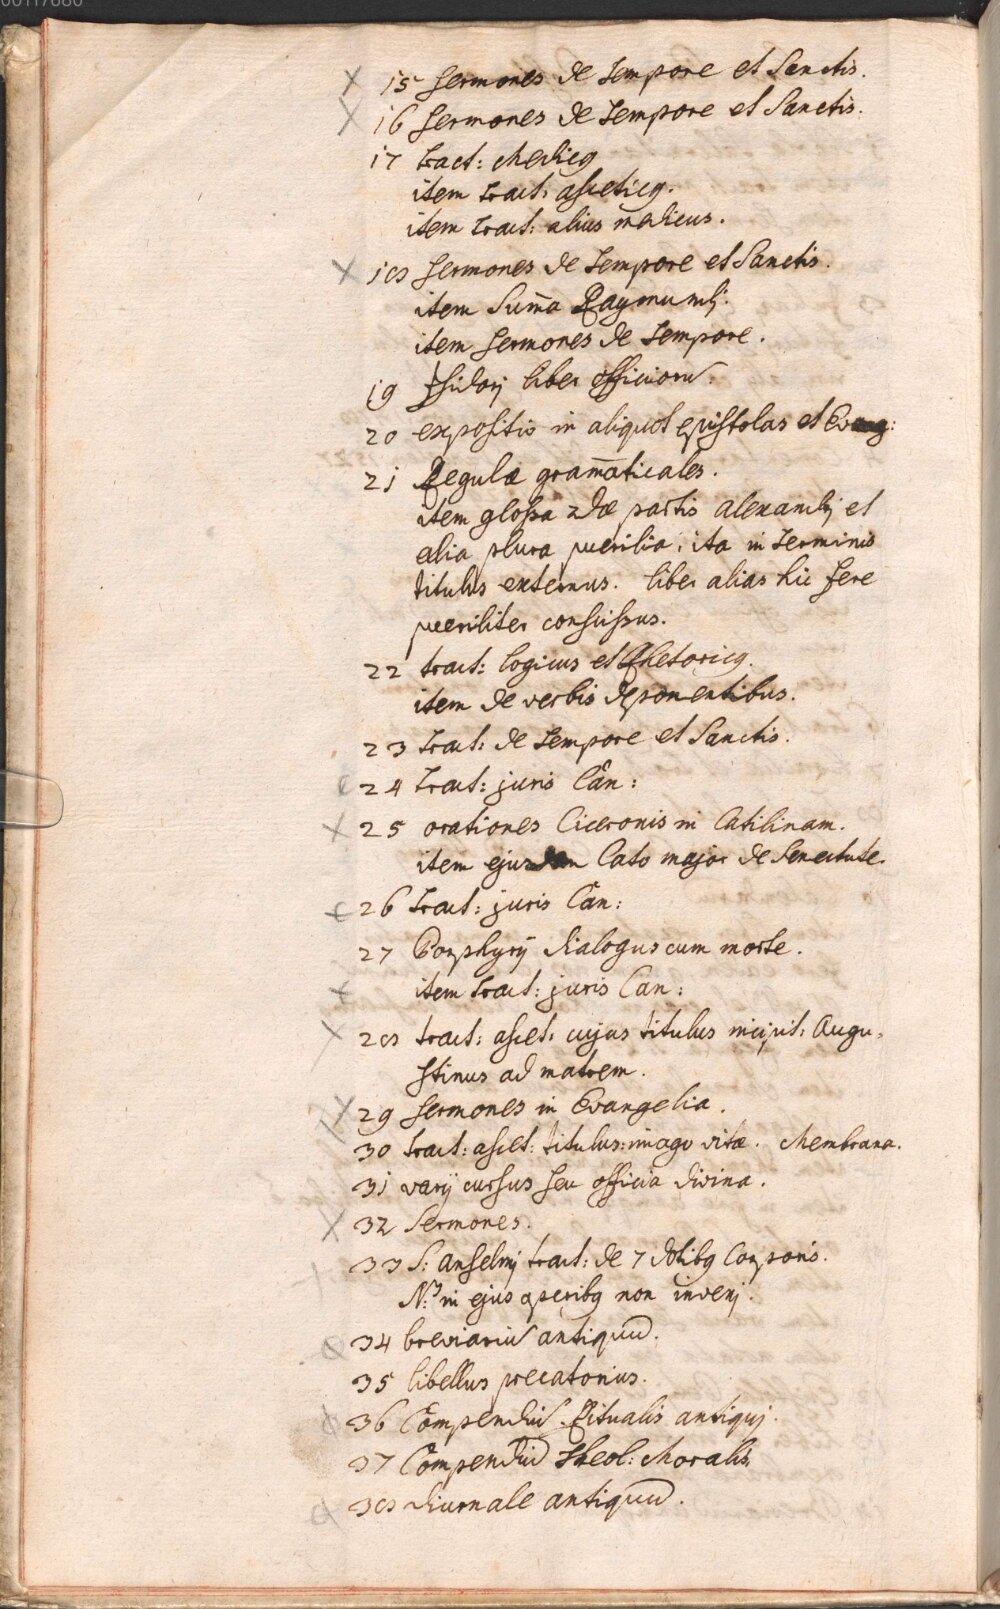 00117080
15 Sermones de Tempore et Sanctis.
16 Sermones de Tempore et Sanctis.
17 tract: Medicq
item tract: asceticq.
item tract: alius medicus.
18 Sermones de Tempore et Sanctis.
item Sum̄a Raymundj.
item Sermones de Tempore.
19 Isidorj liber officiorū.
20 expositio in aliquot epistolas et Evang:
21 Regulæ gram̄aticales.
item glossa 2dæ partis alexandrj et
alia plura puerilia, ita in terminis
titulus externus. liber alias hic fere
pueriliter conscissus.
22 tract: logicus et Rhetoricq.
item de verbis deponentibus.
23 tract: de Tempore et Sanctis.
24 tract: juris Can:
25 orationes Ciceronis in Catilinam.
item ejusdem Cato major de Senectute.
26 tract: juris Can:
27 Porphyrij dialogus cum morte.
item tract: juris Can:
28 tract: ascet: cujus titulus incipit: Augu-
stinus ad matrem.
29 Sermones in Evangelia.
30 tract: ascet: titulus: imago vitæ. Membrana.
31 varij cursus seu officia divina.
32 Sermones.
33 S: anselmj tract: de 7 dotibq Corporis.
N.B. in ejus operibq non invenj.
34 breviariū antiquū.
35 libellus precatorius.
36 Compendiū Ritualis antiquj.
37 Compendiū Theol: Moralis
38 diurnale antiquū.